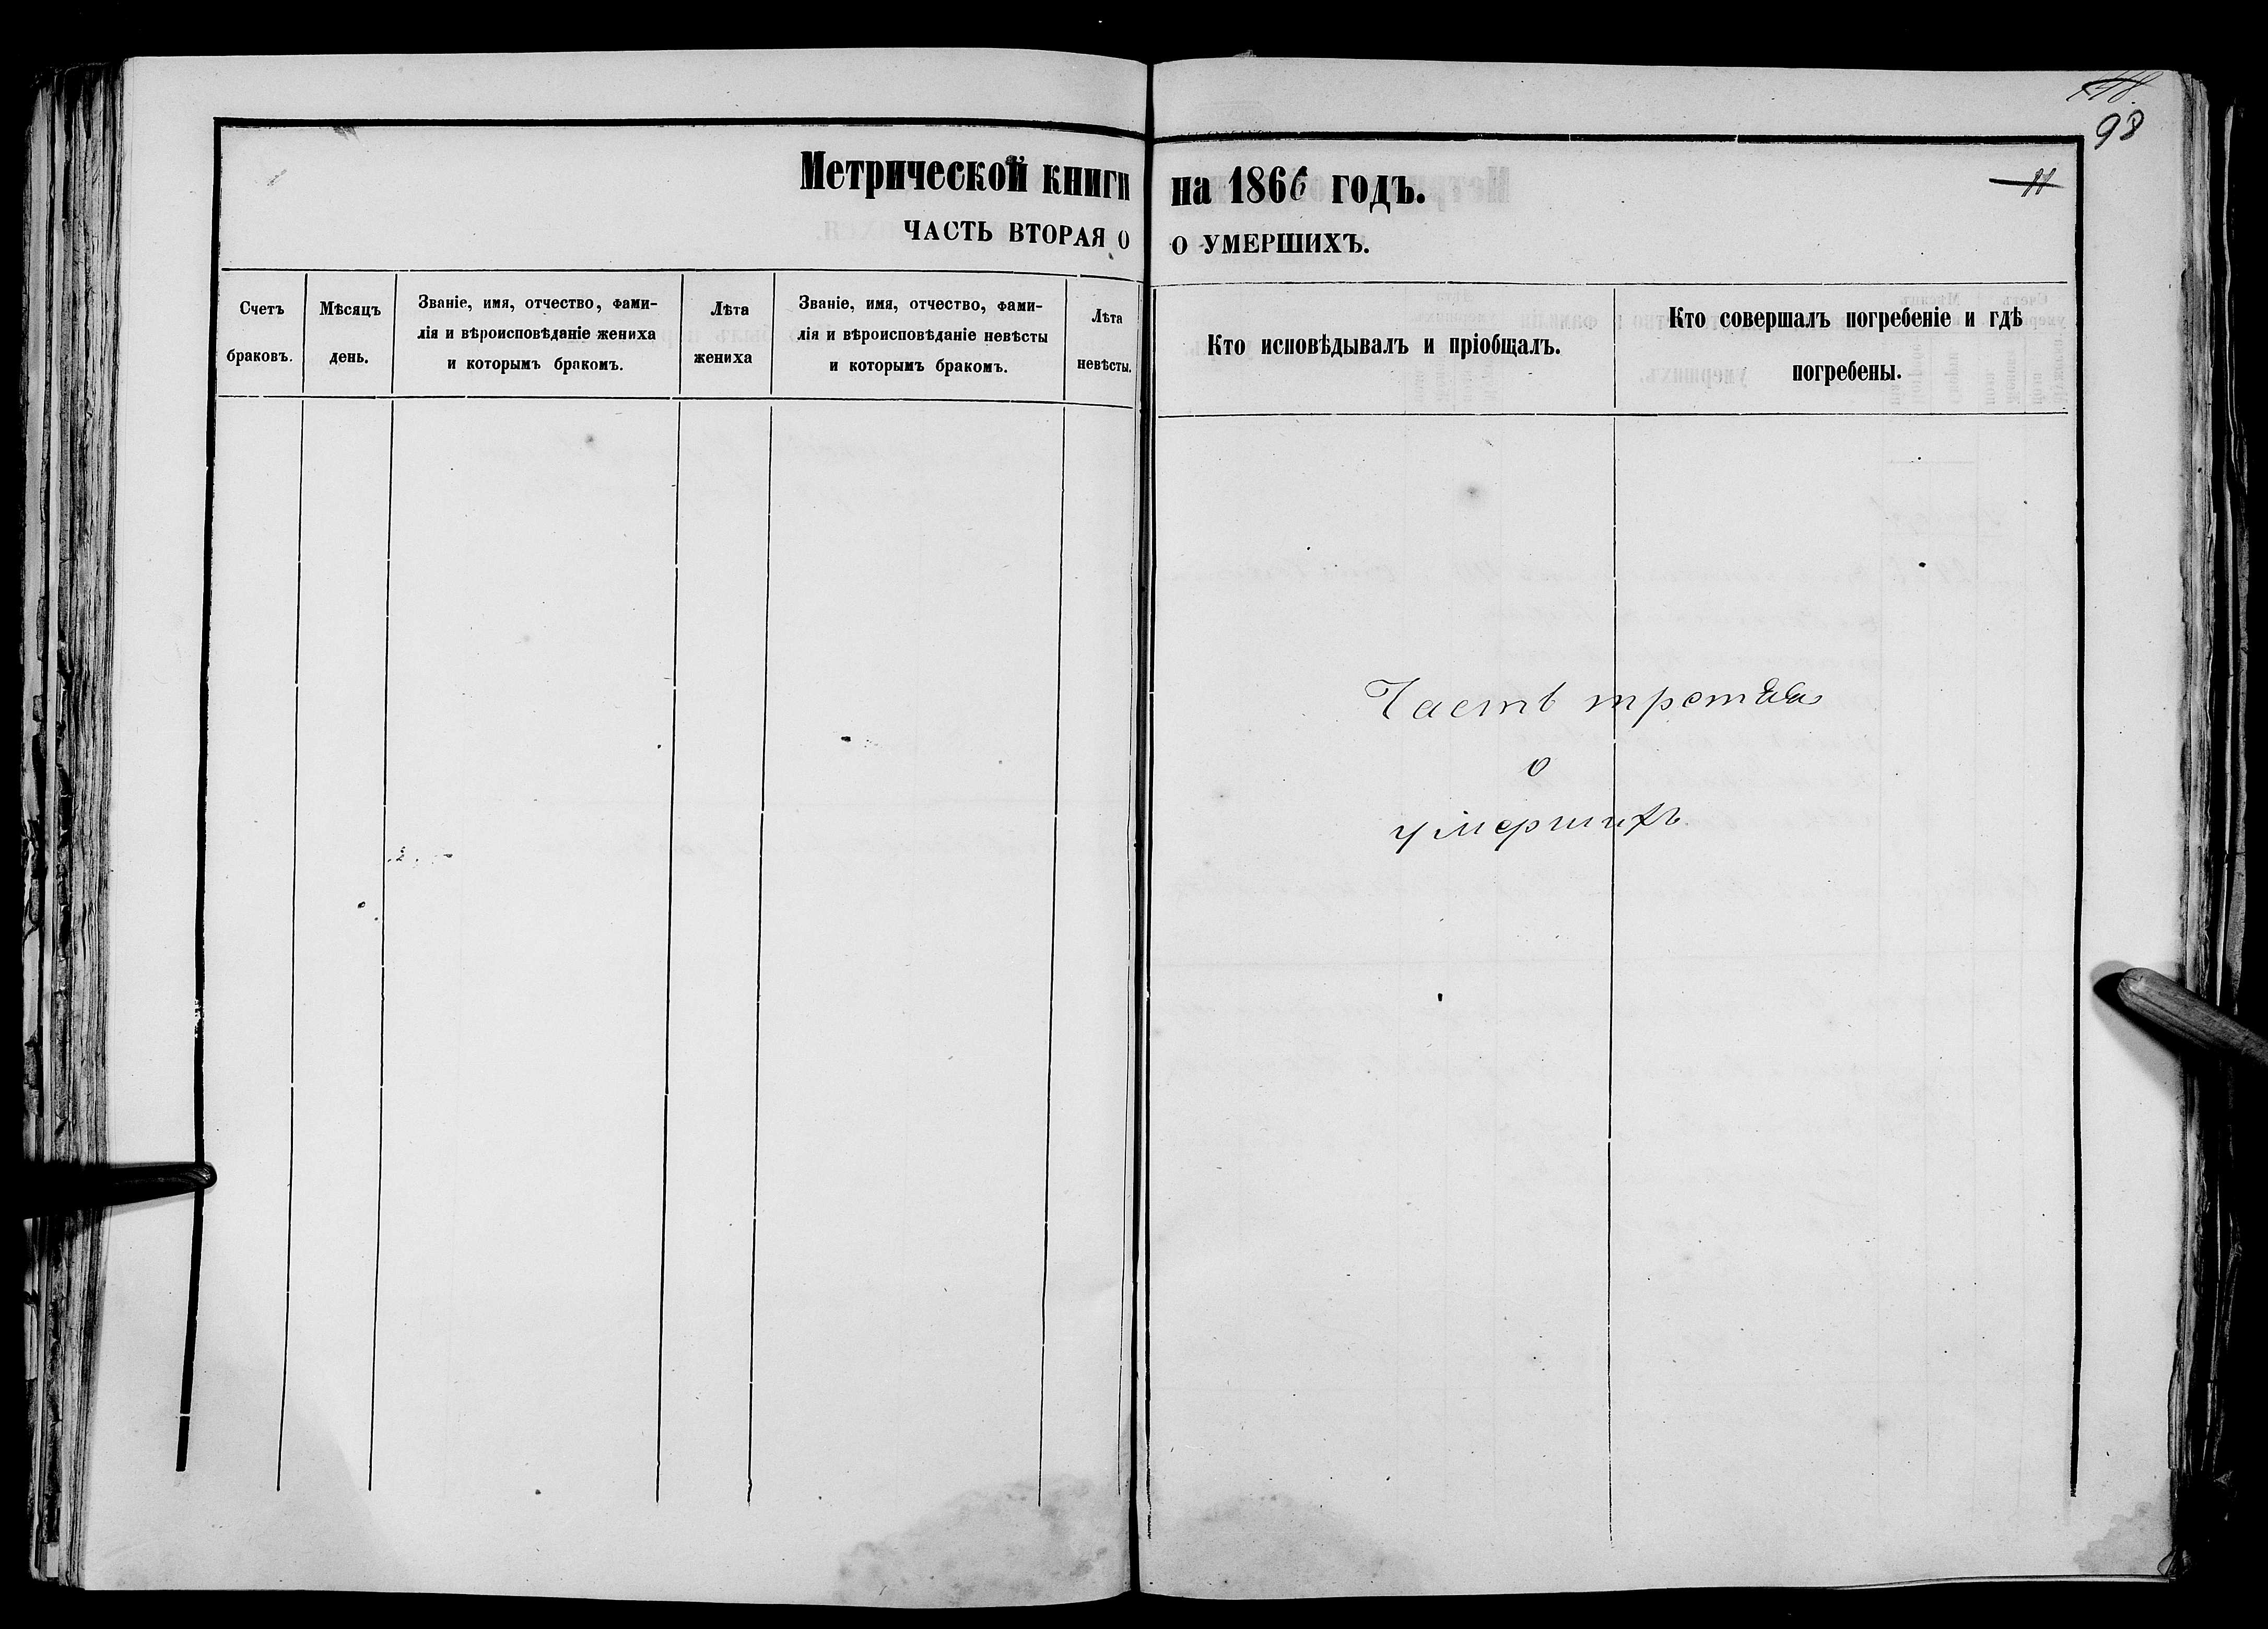 98
11
Метрической книги
ЧАСТЬ ВТОРАЯ О
Счетъ
браковъ.
Мѣсяцъ
день.
Званіе, имя, отчество, фами-
лія и вѣроисповѣданіе жениха
и которымъ бракомъ.
Лѣта
жениха
Званіе, имя, отчество, фами-
лія и вѣроисповѣданіе невѣсты
и которымъ бракомъ.
Лѣта
невѣсты.
на 1866 годъ.
О УМЕРШИХЪ.
Кто исповѣдывалъ и пріобщалъ.
Кто совершалъ погребеніе и гдѣ
погребены.
Часть третья
о
умершихъ